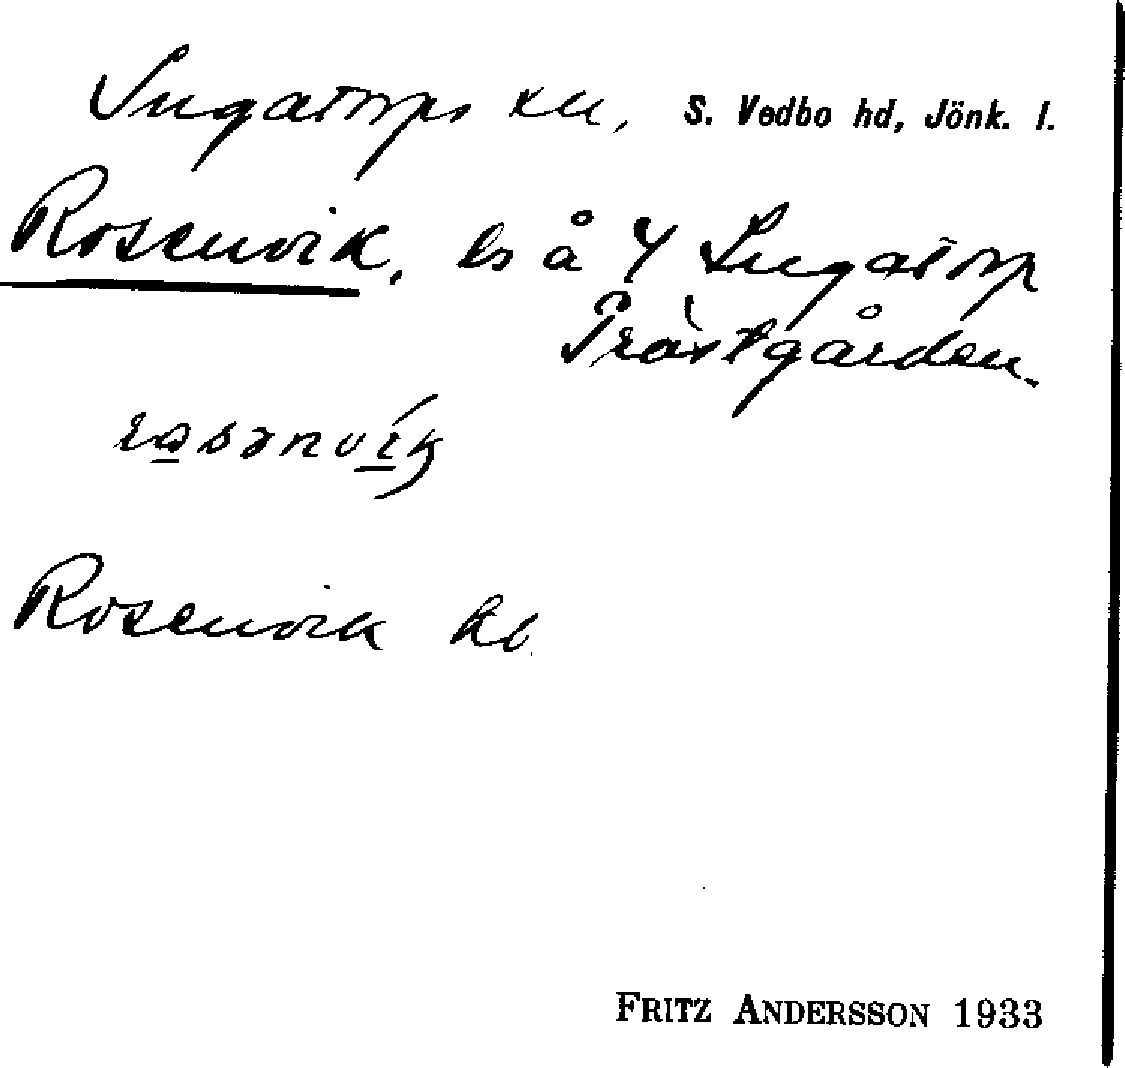 Ingatorps sn, S. Vedbo hd, Jönk. l.
Rosenvik, ls å 4 Ingatorp
Prästgården.
rosənvík
Rosenvik hb
FRITZ ANDERSSON 1933